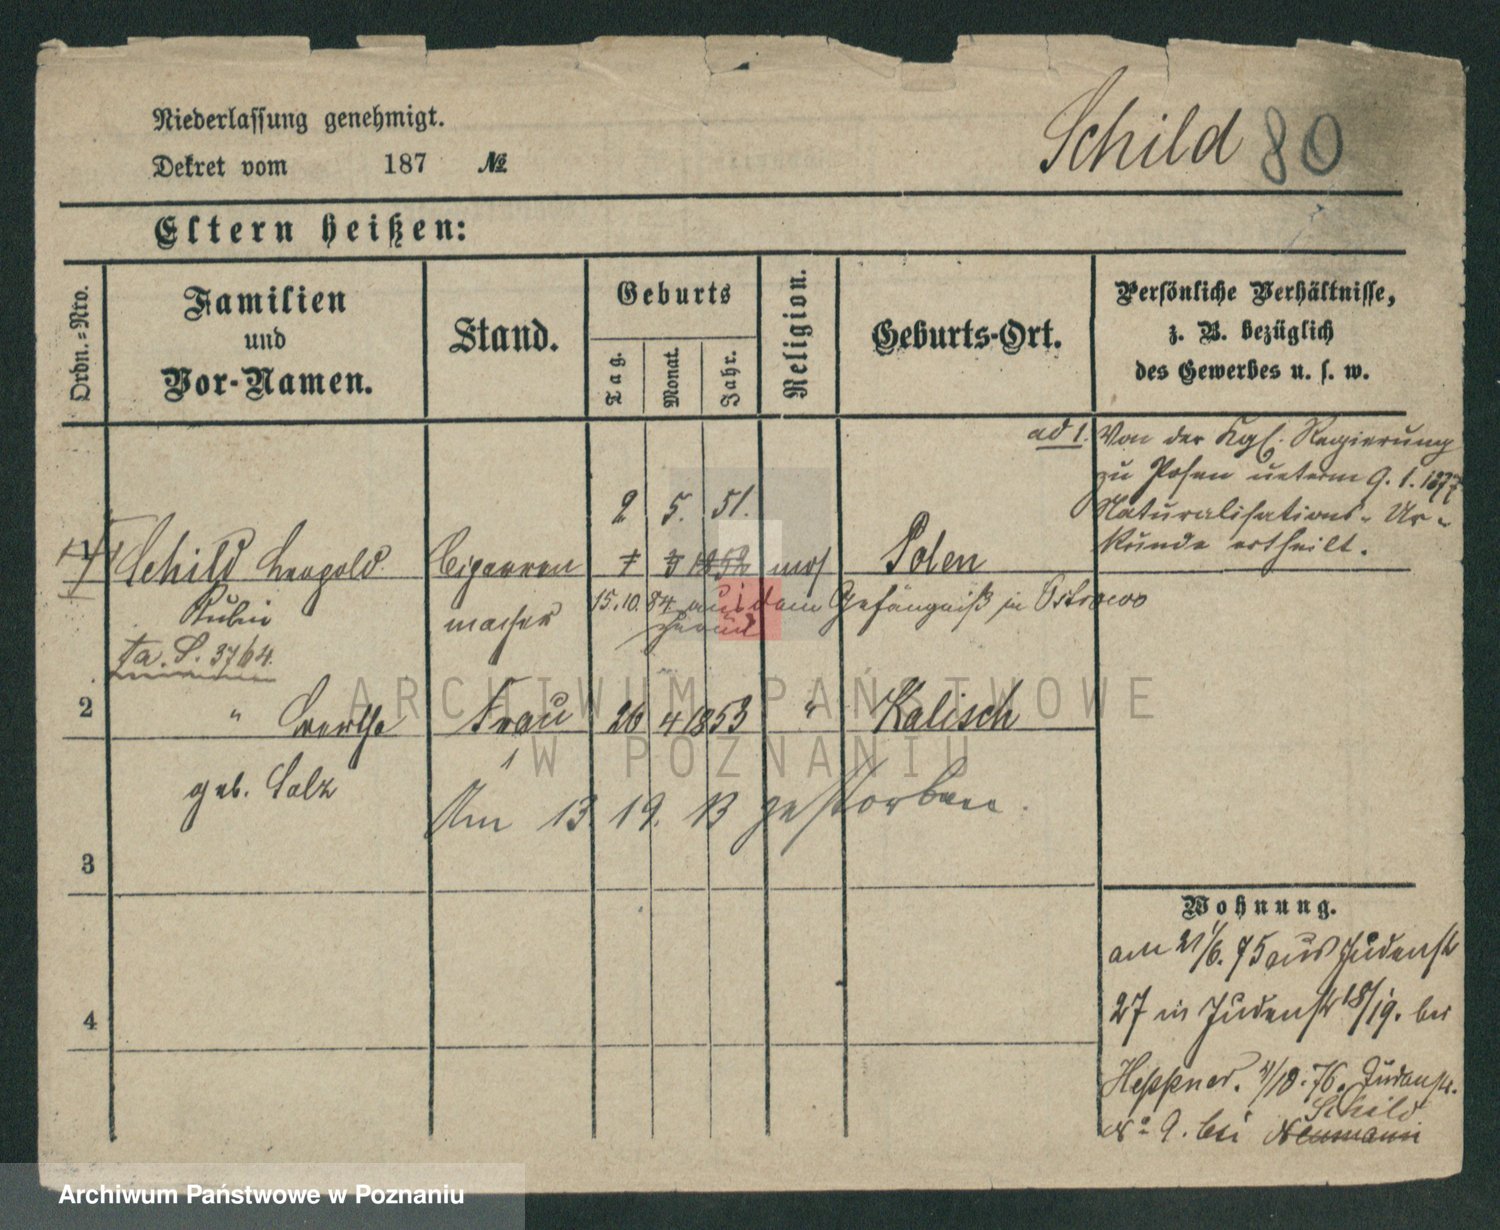 Niederlassung genehmigt.
Dekret vom 187 №
Schild 80
Eltern heißen:
Ordn.=Nro.
Familien
und
Vor-Namen.
Stand.
Geburts
Tag.
Monat.
Jahr.
Religion.
Geburts-Ort.
Persönliche Verhältnisse,
z. B. bezüglich
des Gewerbes u. s. w.
ad 1. Von der Kgl. Regierung
zu Posen unterm 9. 1. 1877
Naturalisations-Ur-
kunde ertheilt.
2 5. 51.
1 Schild Leopold Cigarren 1852 mos Polen
Rubin
macher
15.10.84 aus dem Gefängniß in Ostrowo
zurück
Ta. S. 3764.
2 " Berthe Frau 26 4 1853 " Kalisch
geb. Salz
Am 13. 19. 13 gestorben.
3
4
Wohnung.
am 21/6. 75 aus Judenstr
27 in Judenstr 18/19. bei
Heppner. /10. 76. Judenstr.
Schild
No 9. bei Neumann
ARCHIWUM PAŃSTWOWE
W POZNANIU
Archiwum Państwowe w Poznaniu